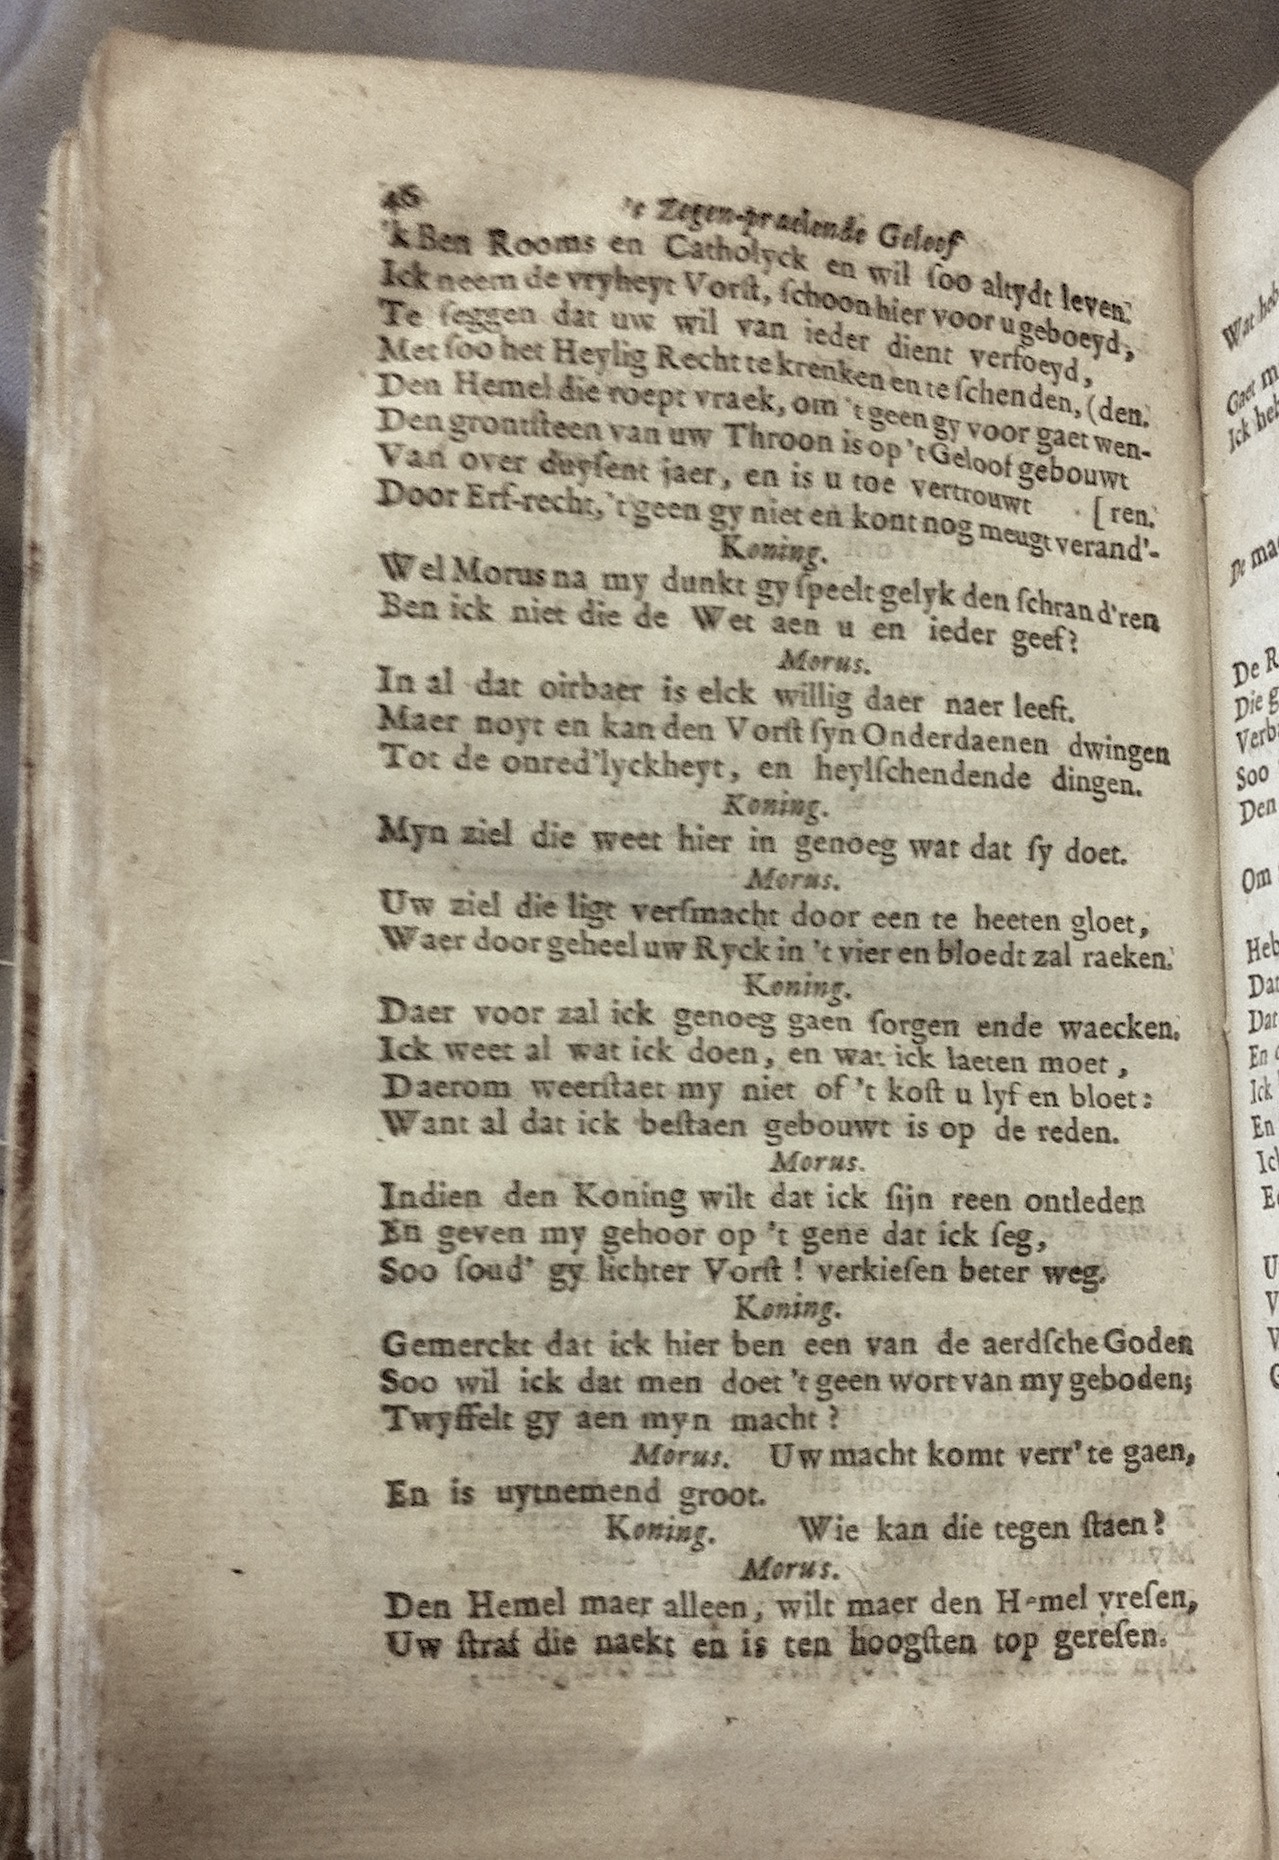 46 't Zegen-praelende Geloof
'k Ben Rooms en Catholyck en wil ſoo altydt leven.
Ick neem de vryheyt Vorſt, ſchoon hier voor u geboeyd,
Te ſeggen dat uw wil van ieder dient verfoeyd,
Met ſoo het Heylig Recht te krenken en te ſchenden, (den.
Den Hemel die roept vraek, om 't geen gy voor gaet wen-
Den grontſteen van uw Throon is op 't Geloof gebouwt
Van over duyſent jaer, en is u toe vertrouwt [ren.
Door Erf-recht, 't geen gy niet en kont nog meugt verand'-
Koning.
Wel Morus na my dunkt gy ſpeelt gelyk den ſchrand'ren
Ben ick niet die de Wet aen u en ieder geef?
Morus.
In al dat oirbaer is elck willig daer naer leeft.
Maer noyt en kan den Vorſt ſyn Onderdaenen dwingen
Tot de onred'lyckheyt, en heylſchendende dingen.
Koning.
Myn ziel die weet hier in genoeg wat dat ſy doet.
Morus.
Uw ziel die ligt verſmacht door een te heeten gloet,
Waer door geheel uw Ryck in 't vier en bloedt zal raeken.
Koning.
Daer voor zal ick genoeg gaen ſorgen ende waecken.
Ick weet al wat ick doen, en wat ick laeten moet,
Daerom weerſtaet my niet of 't koſt u lyf en bloet:
Want al dat ick beſtaen gebouwt is op de reden.
Morus.
Indien den Koning wilt dat ick ſijn reen ontleden
En geven my gehoor op 't gene dat ick ſeg,
Soo ſoud' gy lichter Vorſt! verkieſen beter weg.
Koning.
Gemerckt dat ick hier ben een van de aerdſche Goden
Soo wil ick dat men doet 't geen wort van my geboden;
Twyffelt gy aen myn macht?
Morus. Uw macht komt verr' te gaen,
En is uytnemend groot.
Koning. Wie kan die tegen ſtaen?
Morus.
Den Hemel maer alleen, wilt maer den Hemel vreſen,
Uw ſtraf die naekt en is ten hoogſten top gereſen.
Gaet
Ick
De
De
Die
Soo
Den
Om
Dat
En
Ick
En